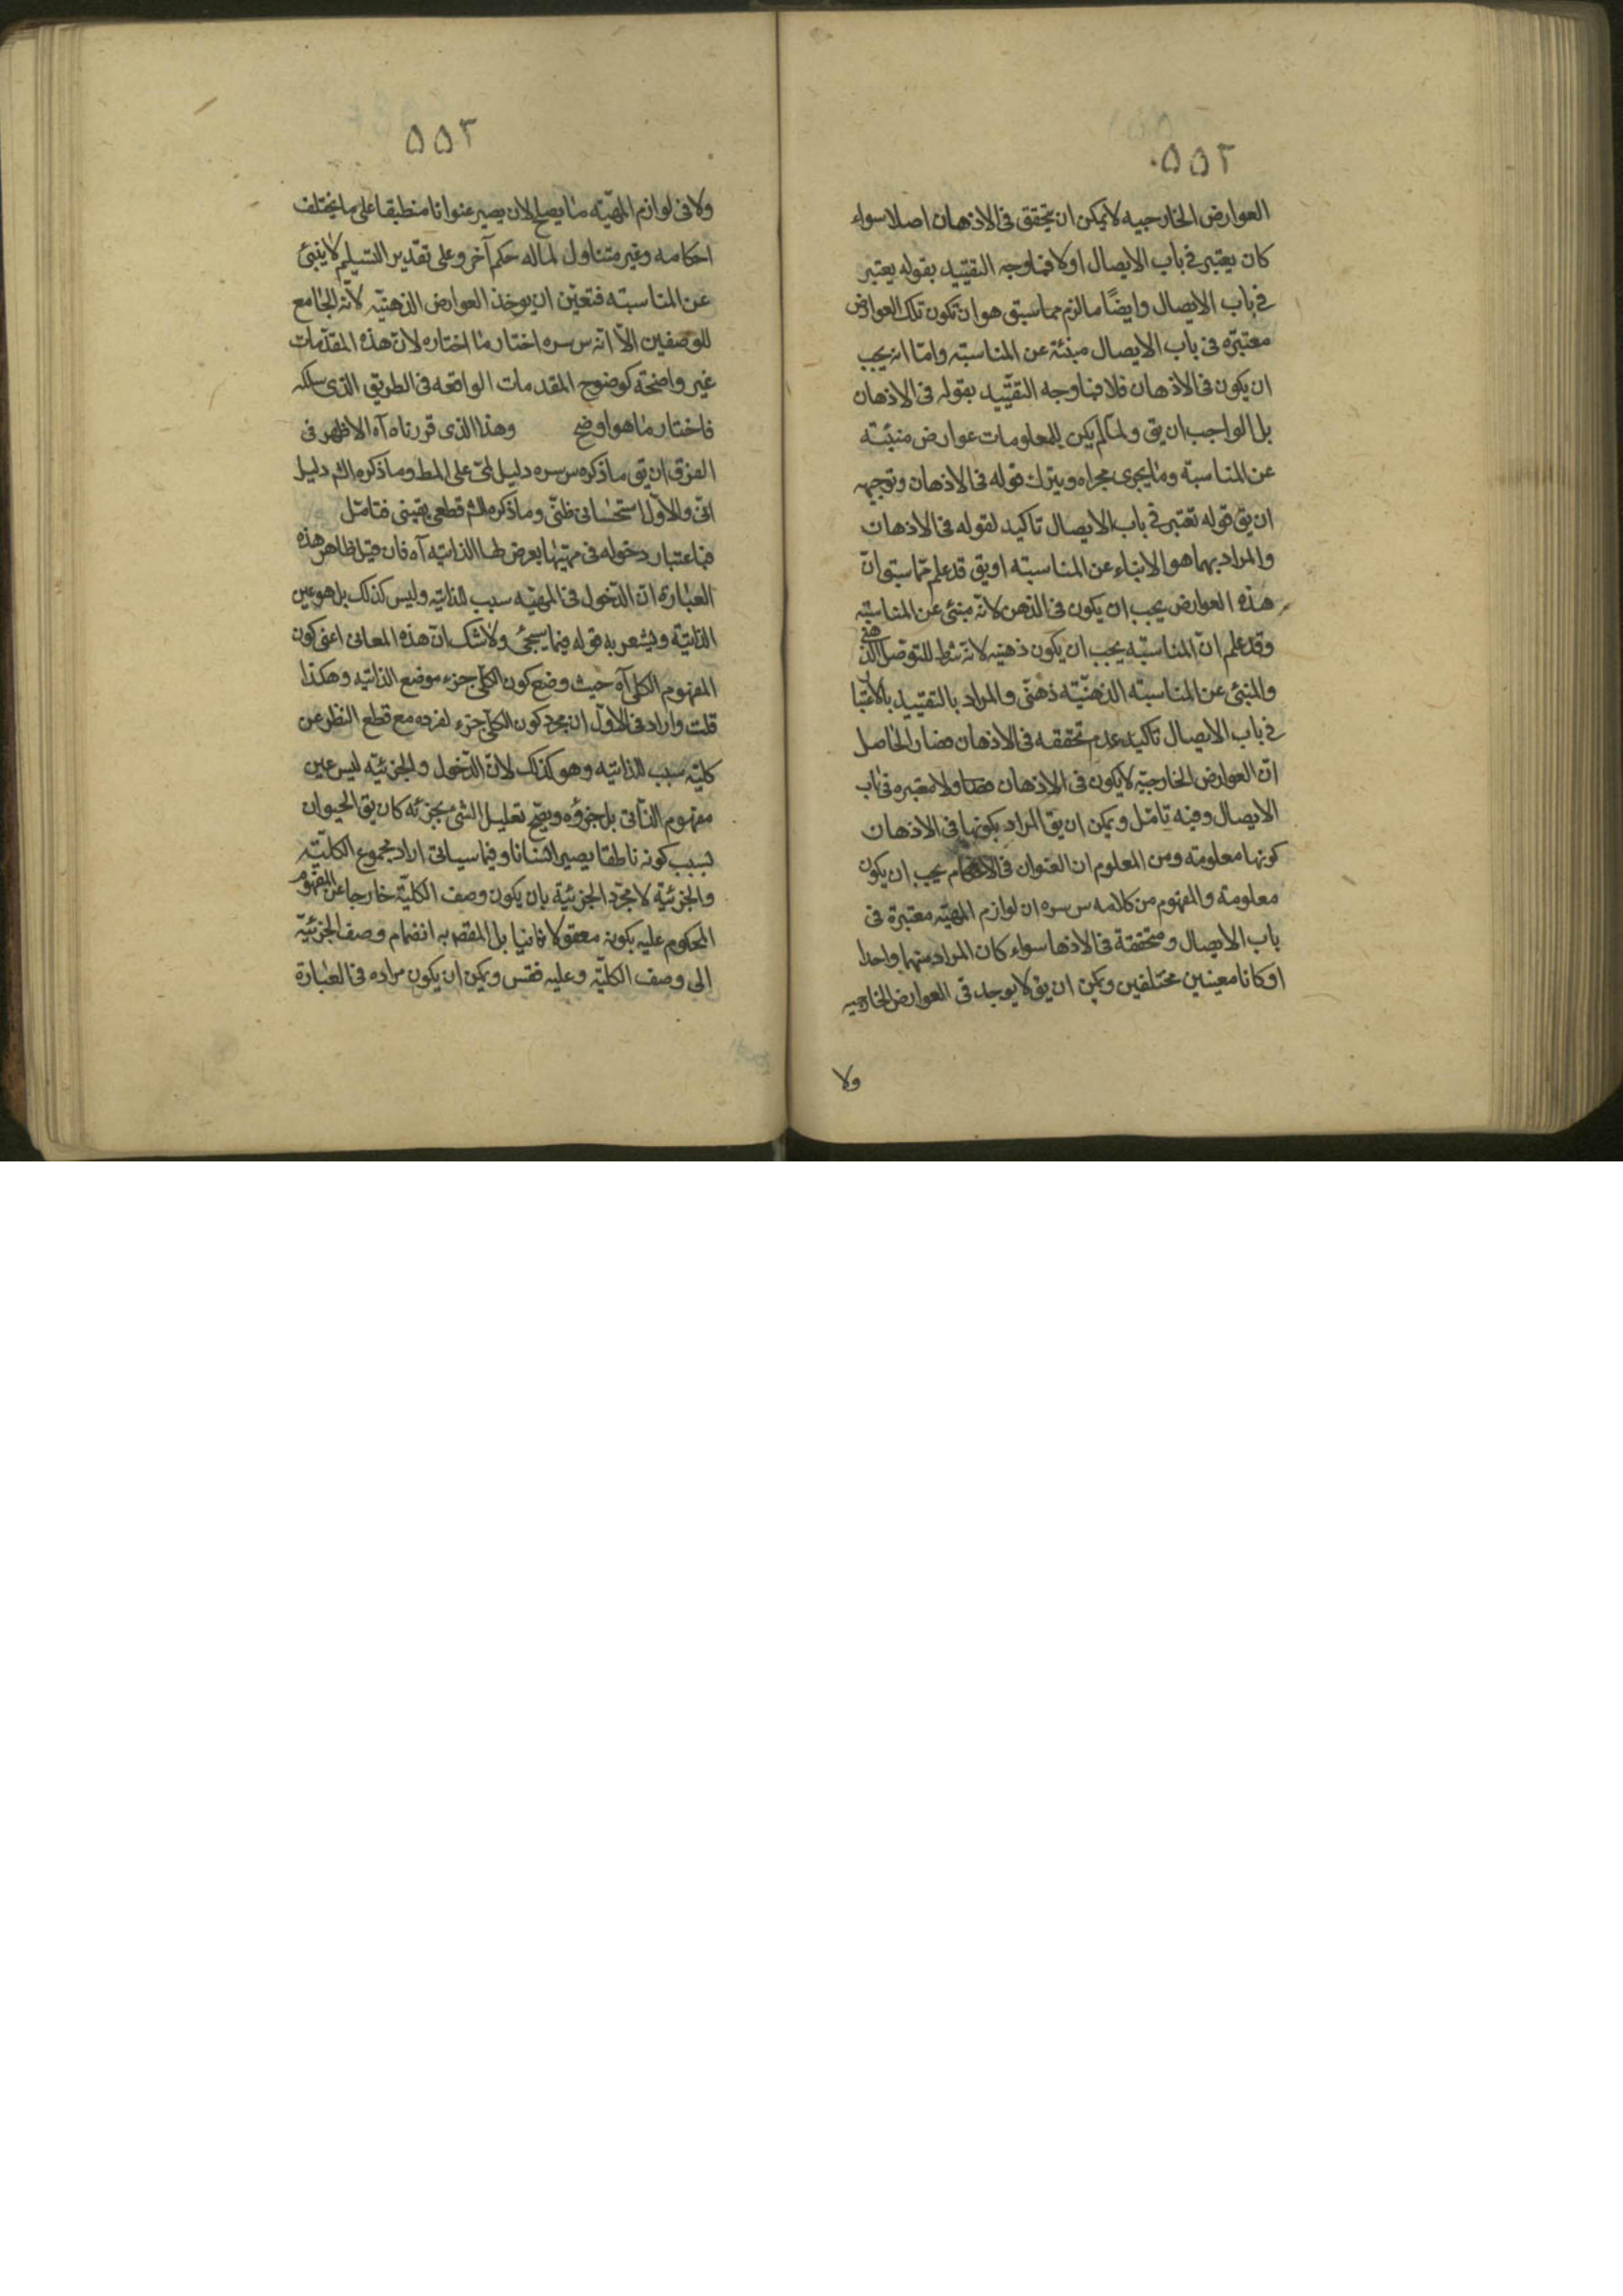 ۵۵۲
العوارض الخارجيه لايمكن ان يتحقق فى الاذهان اصلا سواء
كان يعتبر فى باب الايصال اولا فما وجه التقييد بقوله يعتبر
فى باب الايصال وايضًا ما لزم مما سبق هو ان تكون تلك العوارض
معتبرة فى باب الايصال مبنئة عن المناسبته وامّا انه يجب
ان يكون فى الاذهان فلا فما وجه التقييد بقوله فى الاذهان
بل الواجب ان يق ولمّا لم يكن للمعلومات عوارض منبئته
عن المناسبته وما يجرى مجراه ويترك قوله فى الاذهان وتوجيهه
ان يق قوله تعتبر فى باب الايصال تاكيد لقوله فى الاذهان
والمراد بهما هو الانباء عن المناسبته او يق قد علم ممّا سبق انّ
هذه العوارض يجب ان يكون فى الذهن لانّه مبنئ عن المناسبته
وقد علم انّ المناسبته يجب ان يكون ذهنيه لانّه شرط للتوصل الذهنى
والمنبئ عن المناسبته الذهنّيته ذهنّى والمراد بالتقييد بالاعتبار
فى باب الايصال تاكيد عدم تحققه فى الاذهان فصار الحاصل
انّ العوارض الخارجيّه لايكون فى الاذهان ولا معتبره فى باب
الايصال وفيه تامّل ويمكن ان يق المراد بكونها فى الاذهان
كونها معلومته ومن المعلوم ان العنوان فى الاحكام يجب ان يكون
معلومة والمفهوم من كلامه س سره ان لوازم المهيّه معتبرة فى
باب الايصال ومتحققة فى الاذها سواء كان المراد منهما واحدا
او كانا معينين مختلفين ويمكن ان يق لايوجد فى العوارض الخارجيه
ولا
۵۵۲
ولا فى لوازم المهيّه ما يصلح لان يصير عنوانا منطبقا على ما يختلف
احكامه وغير متناول لما له حكم آخر وعلى تقدير التسليم لا ينبئ
عن المناسبته فتعيّن ان يوخذ العوارض الذهنيّه لانّه الجامع
للوصفين الّا انّه س سره اختار ما اختاره لانّ هذه المقدّمات
غير واضحته كوضوح المقدمات الواقعه فى الطريق الذى سلكه
فاختار ما هو اوضح وهذا الذى قررناه آه الاظهر فى
الفرق ان يق ما ذكره س سره دليل لمّى على المط وما ذكره الشم دليل
انّى والاوّل استحسانى ظنّى وما ذكره الشم قطعى يقينى فتامّل
فباعتبار دخوله فى مهيّتها يعرض لها الذاتيّه آه فان قيل ظاهر هذه
العبارة انّ الدّخول فى المهيّه سبب للذاتيّه وليس كذلك بل هو عين
الذاتيّة ويشعر به قوله فيما سيجئ ولاشك انّ هذه المعانى اعنى كون
المفهوم الكلى آه حيث وضع كون الكلّى جزء موضع الذاتيّه وهكذا
قلت واراد فى الاوّل ان مجرد كون الكلّى جزء لفرده مع قطع النظر عن
كليّته سبب للذاتيّه وهو كذلك لانّ الدّخول والجزئيّه ليس عين
مفهوم الذّاتى بل جزؤه ويصحّ تعليل الشئ بجزئه كان يق الحيوان
بسبب كونه ناطقا يصير انسانا وفيما سياتى اراد مجموع الكليّته
والجزئيّة لا مجرّد الجزئيّة بان يكون وصف الكليّة خارجا عن المفهوم
المحكوم عليه بكونه معقولا ثانيا بل المقصم به انضمام وصف الجزئيّة
الى وصف الكليّه وعليه فقس ويمكن ان يكون مراده فى العبارة